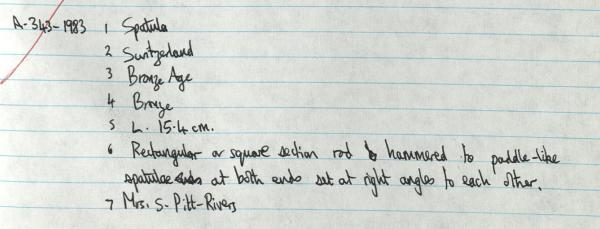 A-343-1983 1 Spatula
2 Switzerland
3 Bronze Age
4 Bronze
5 L. 15.4 cm.
6 Rectangular or square section rod hammered to paddle-like
spatulae ends at both ends set at right angles to each other.
7 Mrs. S. Pitt-Rivers